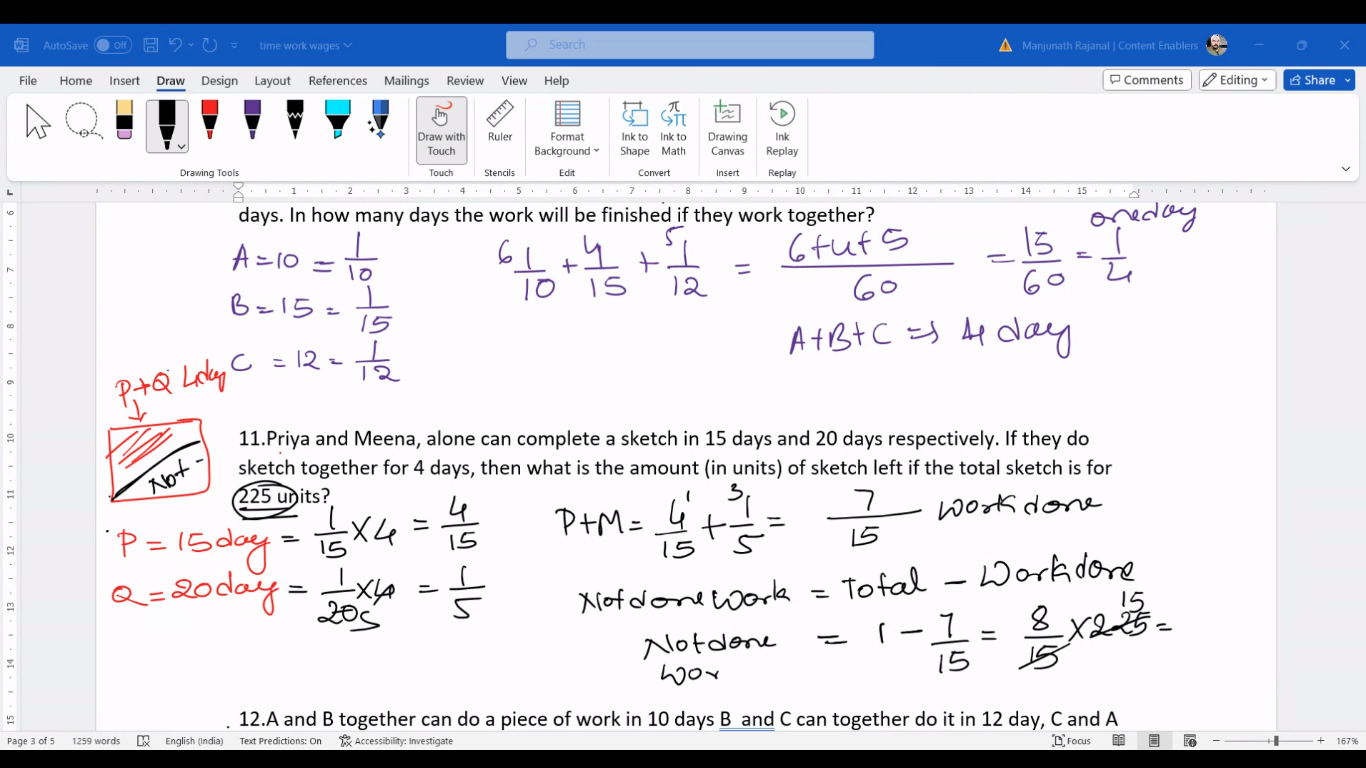 AutoSave Off time work wages Search Manjunath Rajanal | Content Enablers
File Home Insert Draw Design Layout References Mailings Review View Help Comments Editing Share
Draw with Touch Ruler Format Background Ink to Shape Ink to Math Drawing Canvas Ink Replay
Drawing Tools Touch Stencils Edit Convert Insert Replay
1 2 3 4 5 6 7 8 9 10 11 12 13 14 15
days. In how many days the work will be finished if they work together?
one day
A=10 = 1/10
6 1/10 + 4/15 + 5 1/12 = 6+4+5/60 = 15/60 = 1/4
B=15 = 1/15
A+B+C => 4 day
C =12= 1/12
P+Q 4day
Not -
11.Priya and Meena, alone can complete a sketch in 15 days and 20 days respectively. If they do
sketch together for 4 days, then what is the amount (in units) of sketch left if the total sketch is for
225 units?
P = 15day = 1/15 ×4 = 4/15
P+M= 4 1/15 + 3 1/5 = 7/15 work done
Q =20day = 1/20 5 ×4 = 1/5
Not done work = Total - Work done
Not done = 1 - 7/15 = 8/15 × 225 15 =
Wor
12.A and B together can do a piece of work in 10 days B and C can together do it in 12 day, C and A
Page 3 of 5 1259 words English (India) Text Predictions: On Accessibility: Investigate Focus 167%